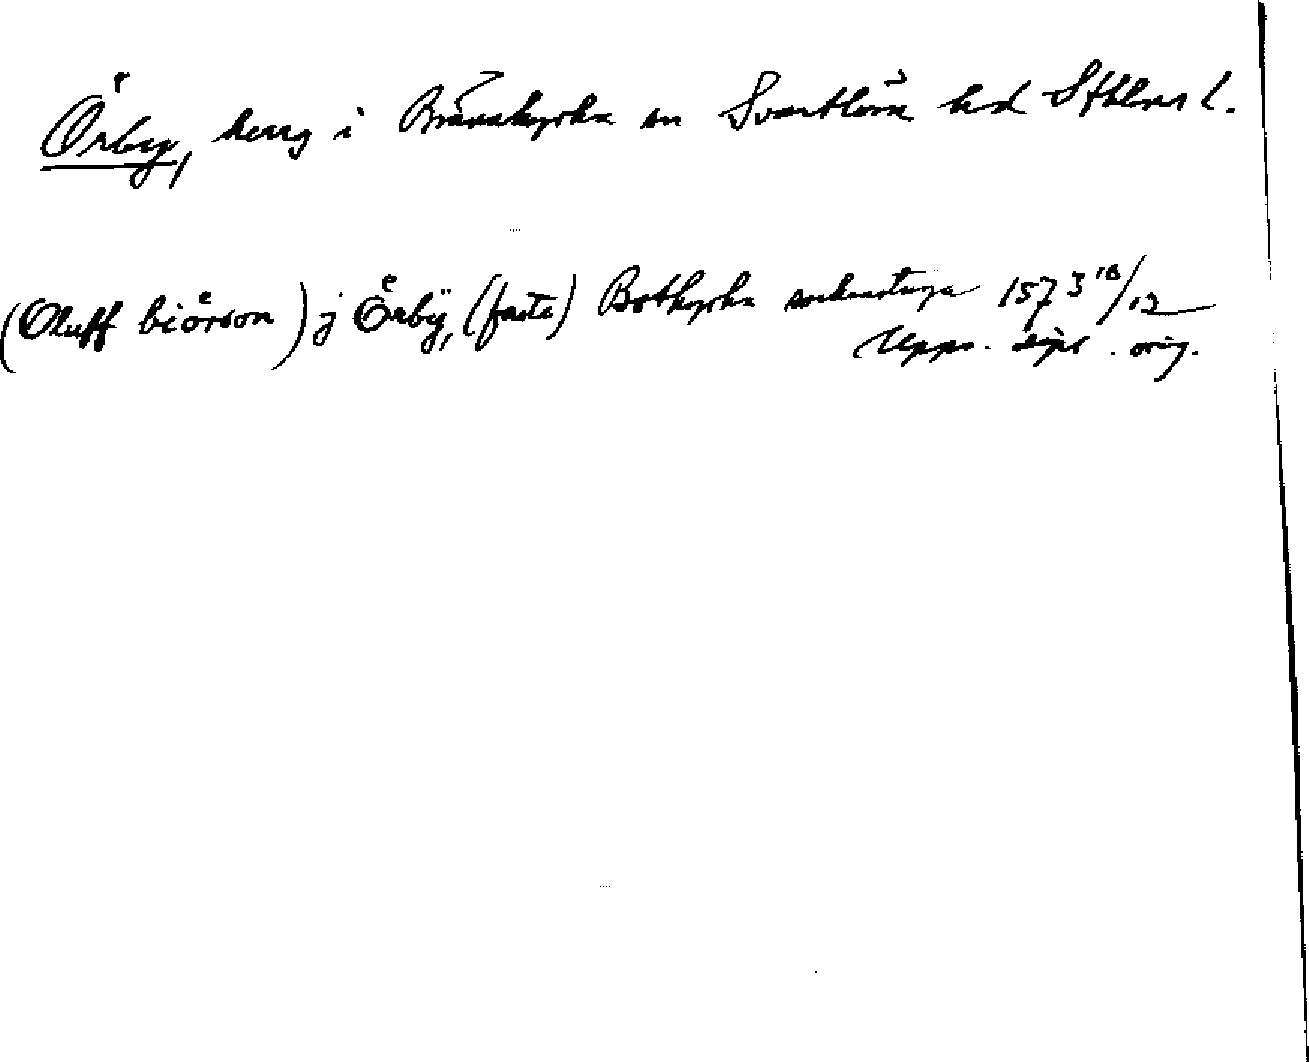 Örby, herrg i Brännkyrka sn Svartlösa hd Sthlms l.
(Oluff biörson) j Örbÿ, (faste) Botkyrka sockenstuga 1573 18/12
Upps. dipl. orig.